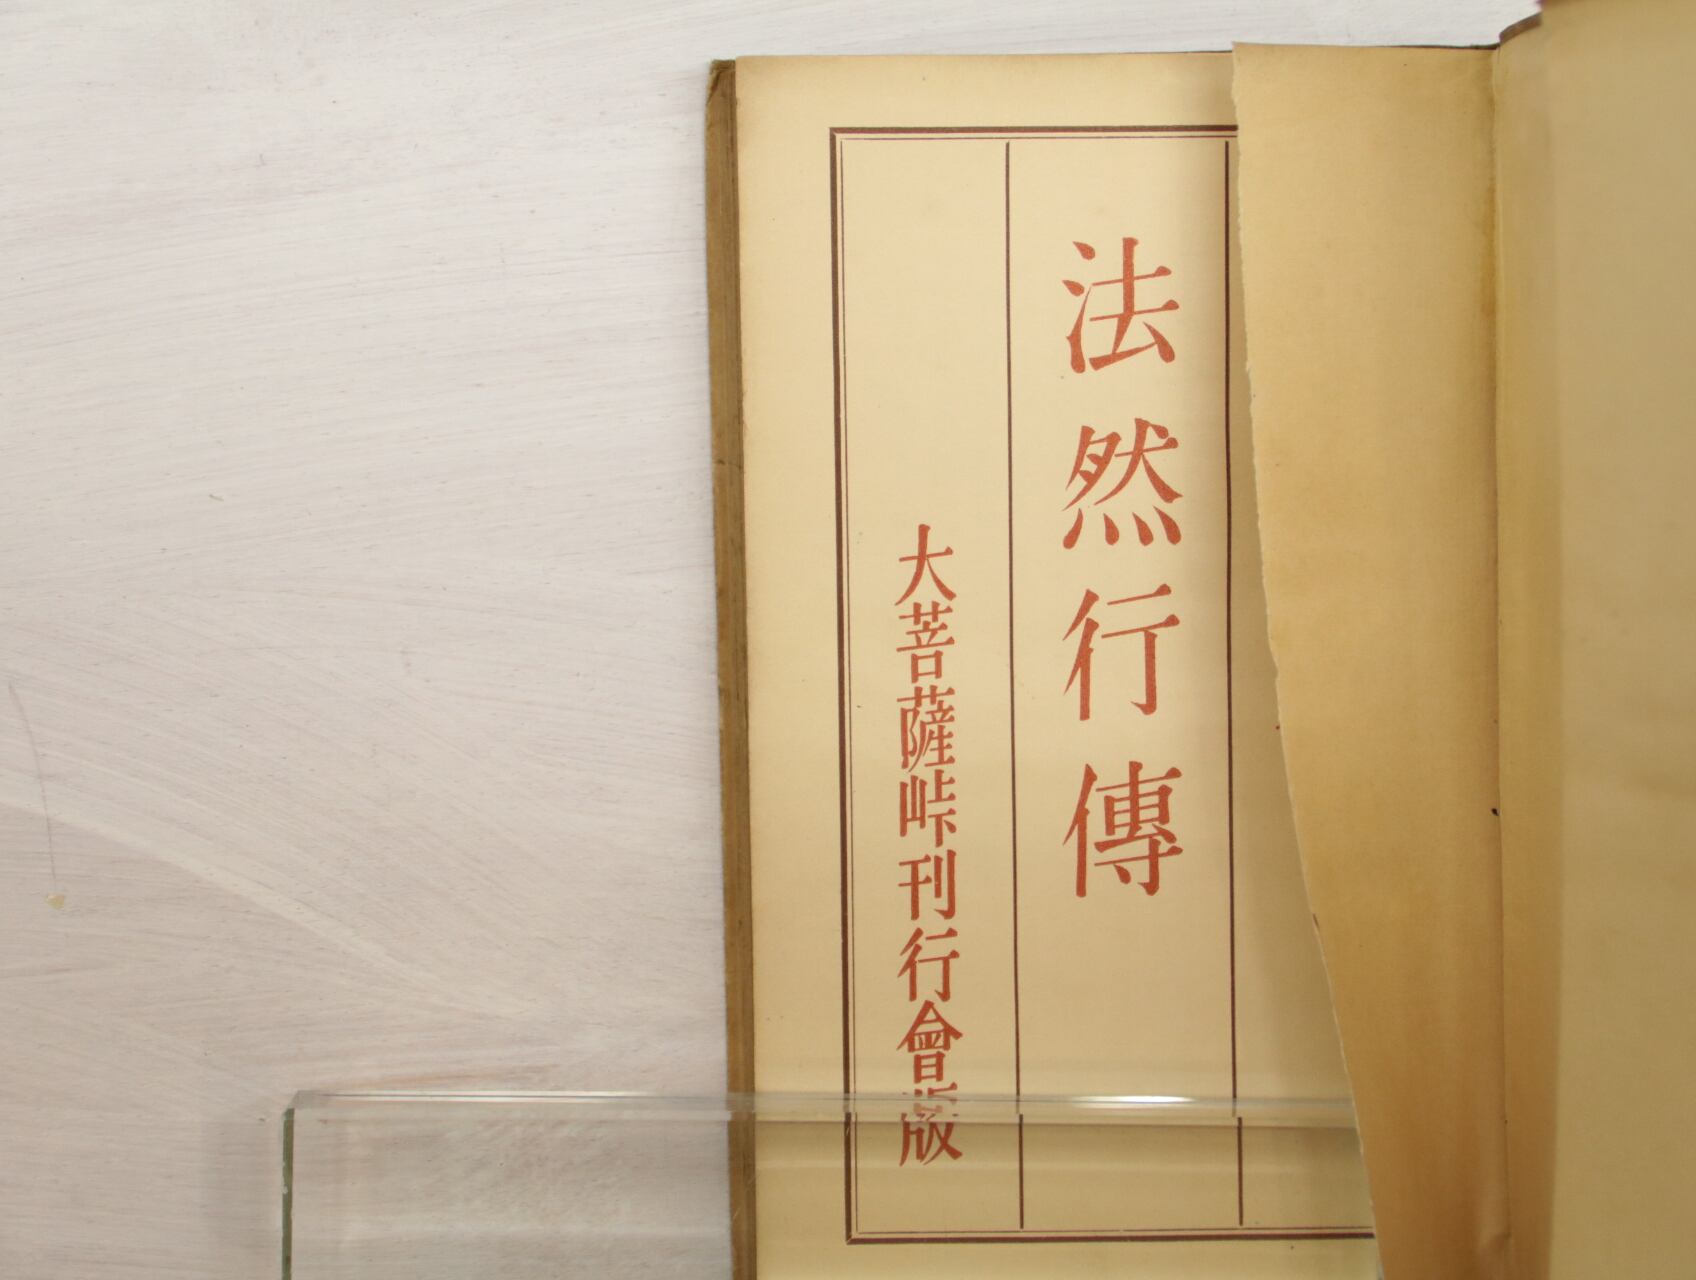 法然行傳
大菩薩峠刊行會版